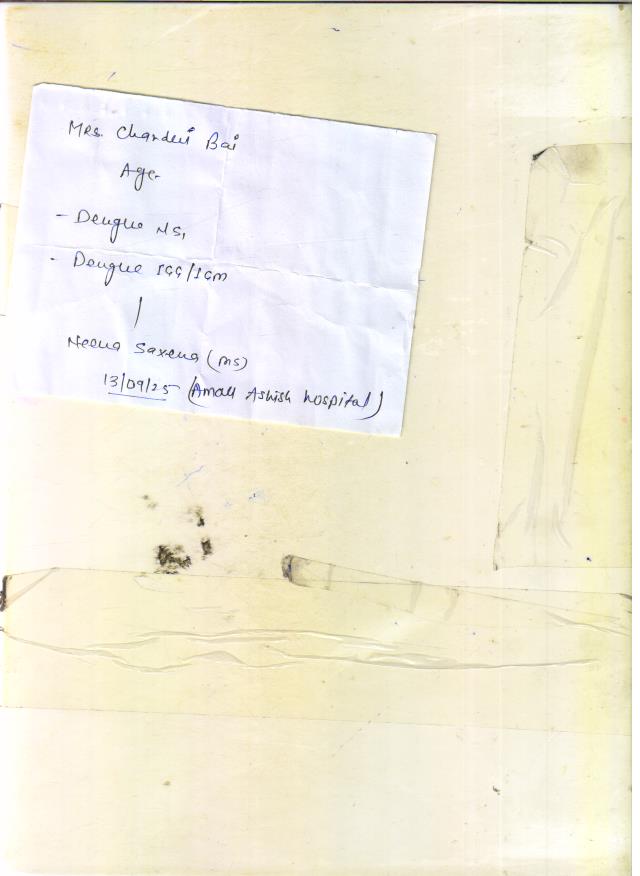 Mrs. Chanderi Bai
Age-
- Dengue NS1
- Dengue IGG/IGM
Neena Saxena (MS)
13/09/25 (Amar Ashish hospital)